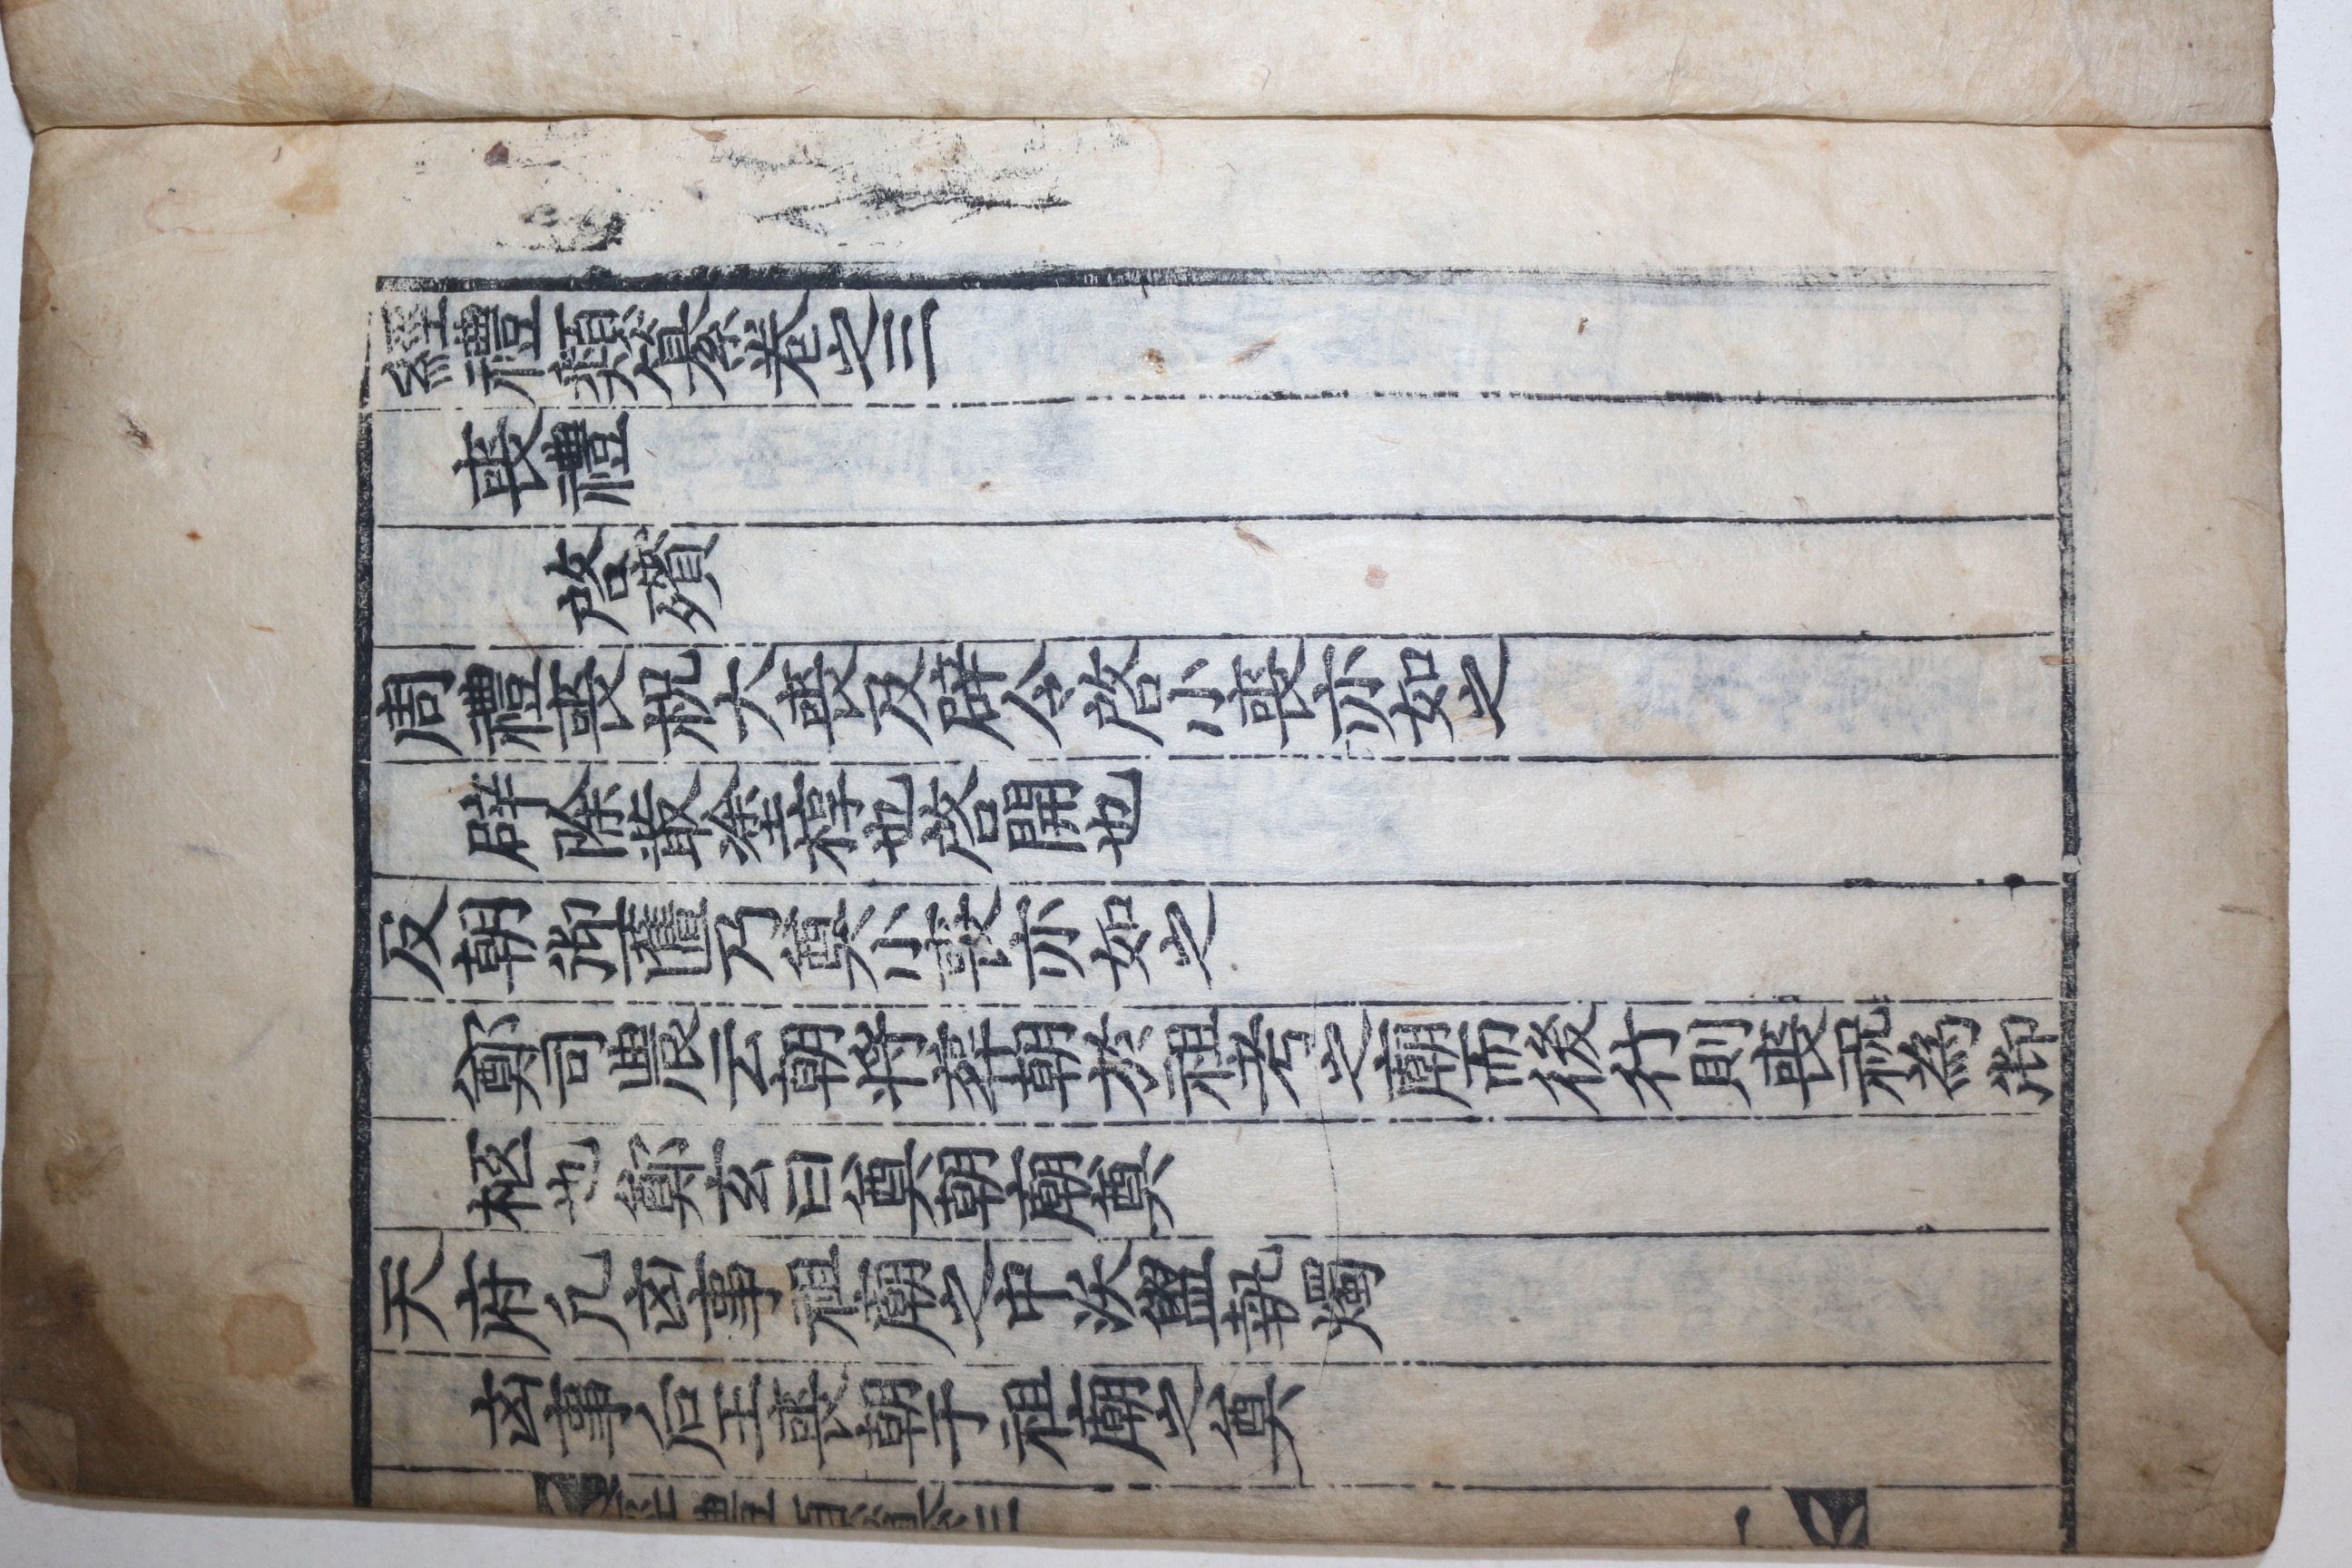 經禮類纂卷之三
喪禮
啓殯
周禮喪祝大喪及辟令啓小喪亦如之
辟除菆塗椁也啓開也
及朝御匶乃奠小喪亦如之
鄭司農云朝將葬朝於祖考之廟而後行則喪祝爲御
柩也鄭玄曰奠朝廟奠
天府凡凶事祖廟之中沃盥執燭
凶事后王喪朝于祖廟之奠